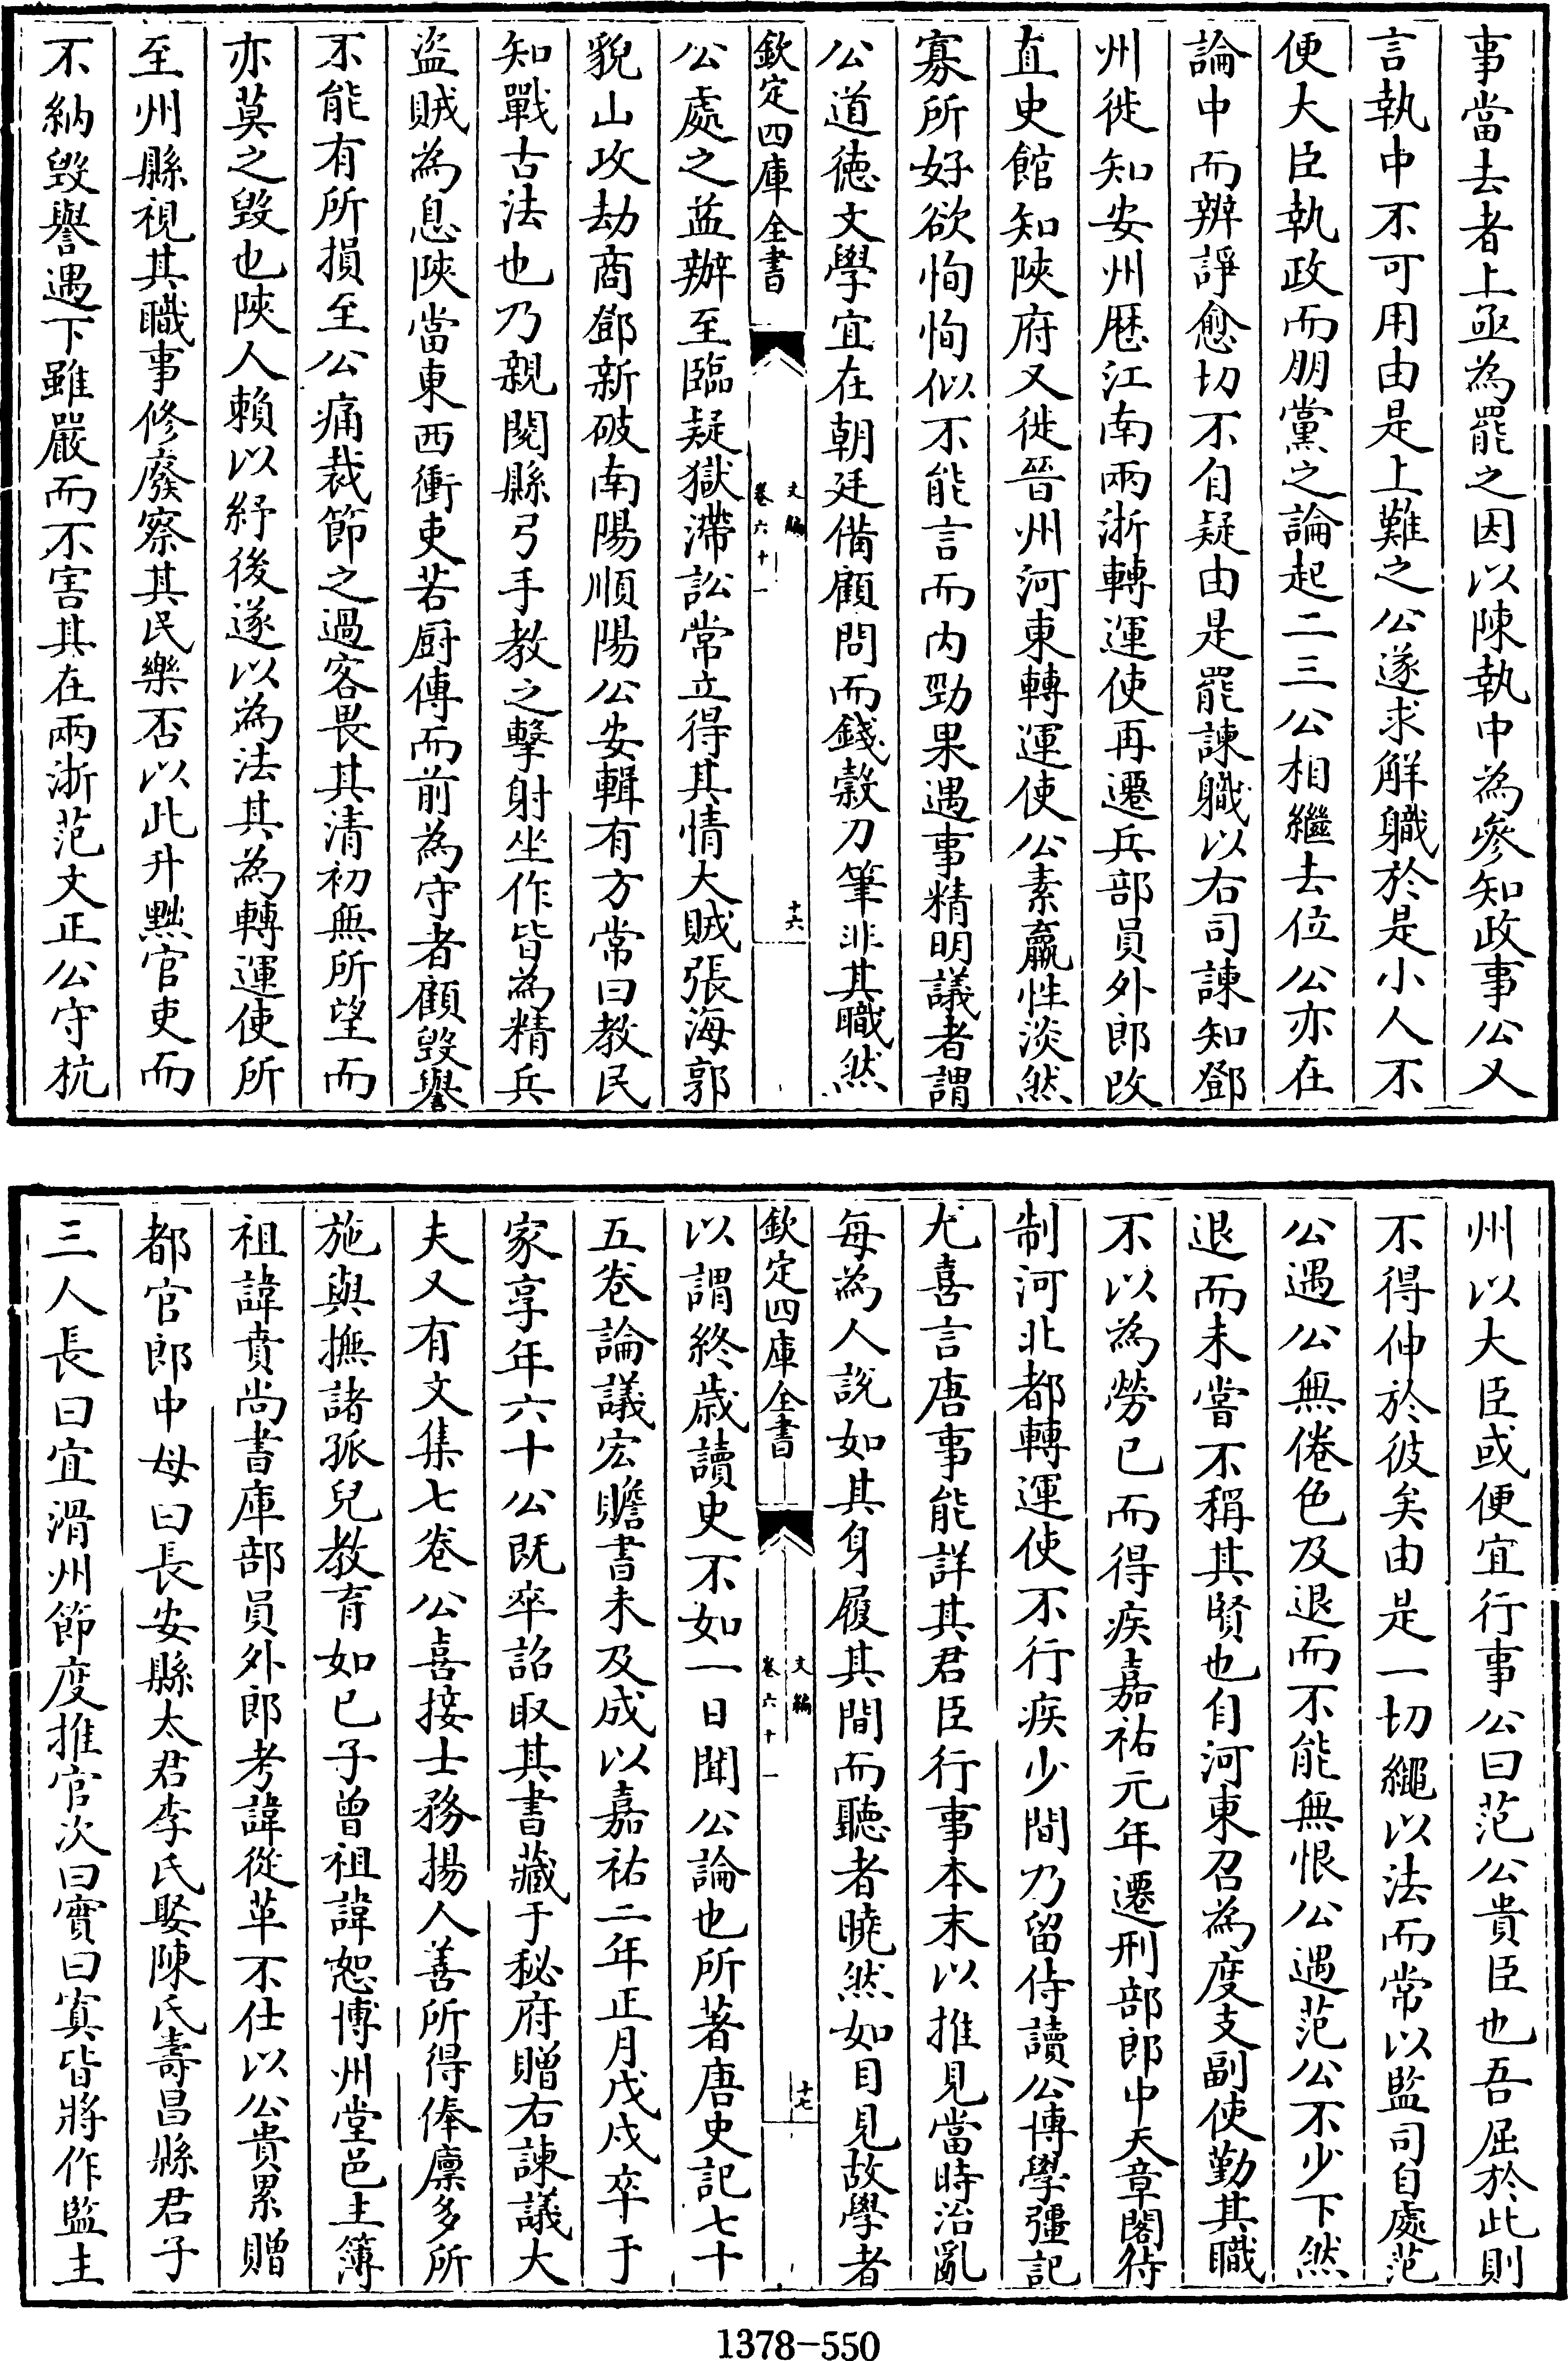 事當去者上亟為罷之因以陳執中為參知政事公又
言執中不可用由是上難之公遂求解職於是小人不
便大臣執政而朋黨之論起二三公相繼去位公亦在
論中而辨諍愈切不自疑由是罷諫職以右司諫知鄧
州徙知安州歷江南兩浙轉運使再遷兵部員外郎改
直史館知陝府又徙晉州河東轉運使公素羸性淡然
寡所好欲恂恂似不能言而内勁果遇事精明議者謂
公道徳文學宜在朝廷備顧問而錢穀刀筆非其職然
欽定四庫全書
文編
卷六十一
十六
公處之益辦至臨疑獄滯訟常立得其情大賊張海郭
貌山攻劫商鄧新破南陽順陽公安輯有方常曰教民
知戰古法也乃親閲縣弓手教之擊射坐作皆為精兵
盜賊為息陝當東西衝吏若厨傳而前為守者顧毀譽
不能有所損至公痛裁節之過客畏其清初無所望而
亦莫之毀也陝人賴以紓後遂以為法其為轉運使所
至州縣視其職事修廢察其民樂否以此升黜官吏而
不納毀譽遇下雖嚴而不害其在兩浙范文正公守杭
州以大臣或便宜行事公曰范公貴臣也吾屈於此則
不得伸於彼矣由是一切繩以法而常以監司自處范
公遇公無倦色及退而不能無恨公遇范公不少下然
退而未嘗不稱其賢也自河東召為度支副使勤其職
不以為勞已而得疾嘉祐元年遷刑部郎中天章閣待
制河北都轉運使不行疾少間乃留侍讀公博學彊記
尤喜言唐事能詳其君臣行事本末以推見當時治亂
每為人說如其身履其間而聽者曉然如目見故學者
欽定四庫全書
文編
卷六十一
十七
以謂終歲讀史不如一日聞公論也所著唐史記七十
五卷論議宏贍書未及成以嘉祐二年正月戊戌卒于
家享年六十公既卒詔取其書藏于秘府贈右諫議大
夫又有文集七卷公喜接士務揚人善所得俸廩多所
施與撫諸孤兒教育如已子曾祖諱恕博州堂邑主簿
祖諱賁尚書庫部員外郎考諱從革不仕以公貴累贈
都官郎中母曰長安縣太君李氏娶陳氏壽昌縣君子
三人長曰宜滑州節度推官次曰實曰寘皆將作監主
1378-550